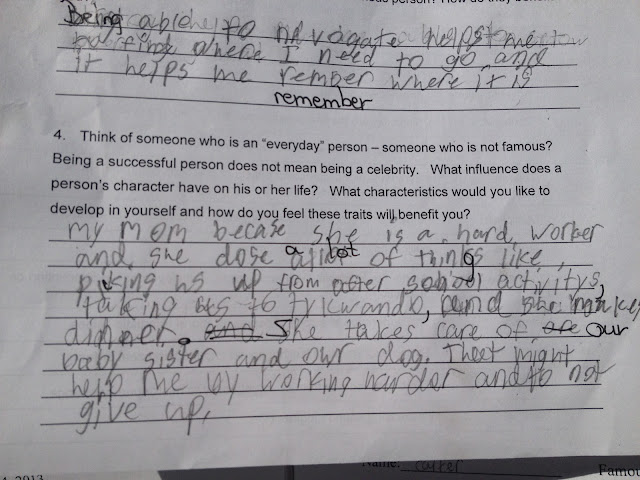 Being able to navagate helps me
find where I need to go and
it helps me rember where it is
remember
4. Think of someone who is an "everyday" person – someone who is not famous?
Being a successful person does not mean being a celebrity. What influence does a
person's character have on his or her life? What characteristics would you like to
develop in yourself and how do you feel these traits will benefit you?
my mom becase she is a hard worker
and she dose a lot of things like,
piking us up from after school activitys,
taking us to tykwando, and she makes
dinner. She takes care of our
baby sister and our dog. Theet might
help me by working harder and to not
give up.
Name: carter
Famou
4, 2013